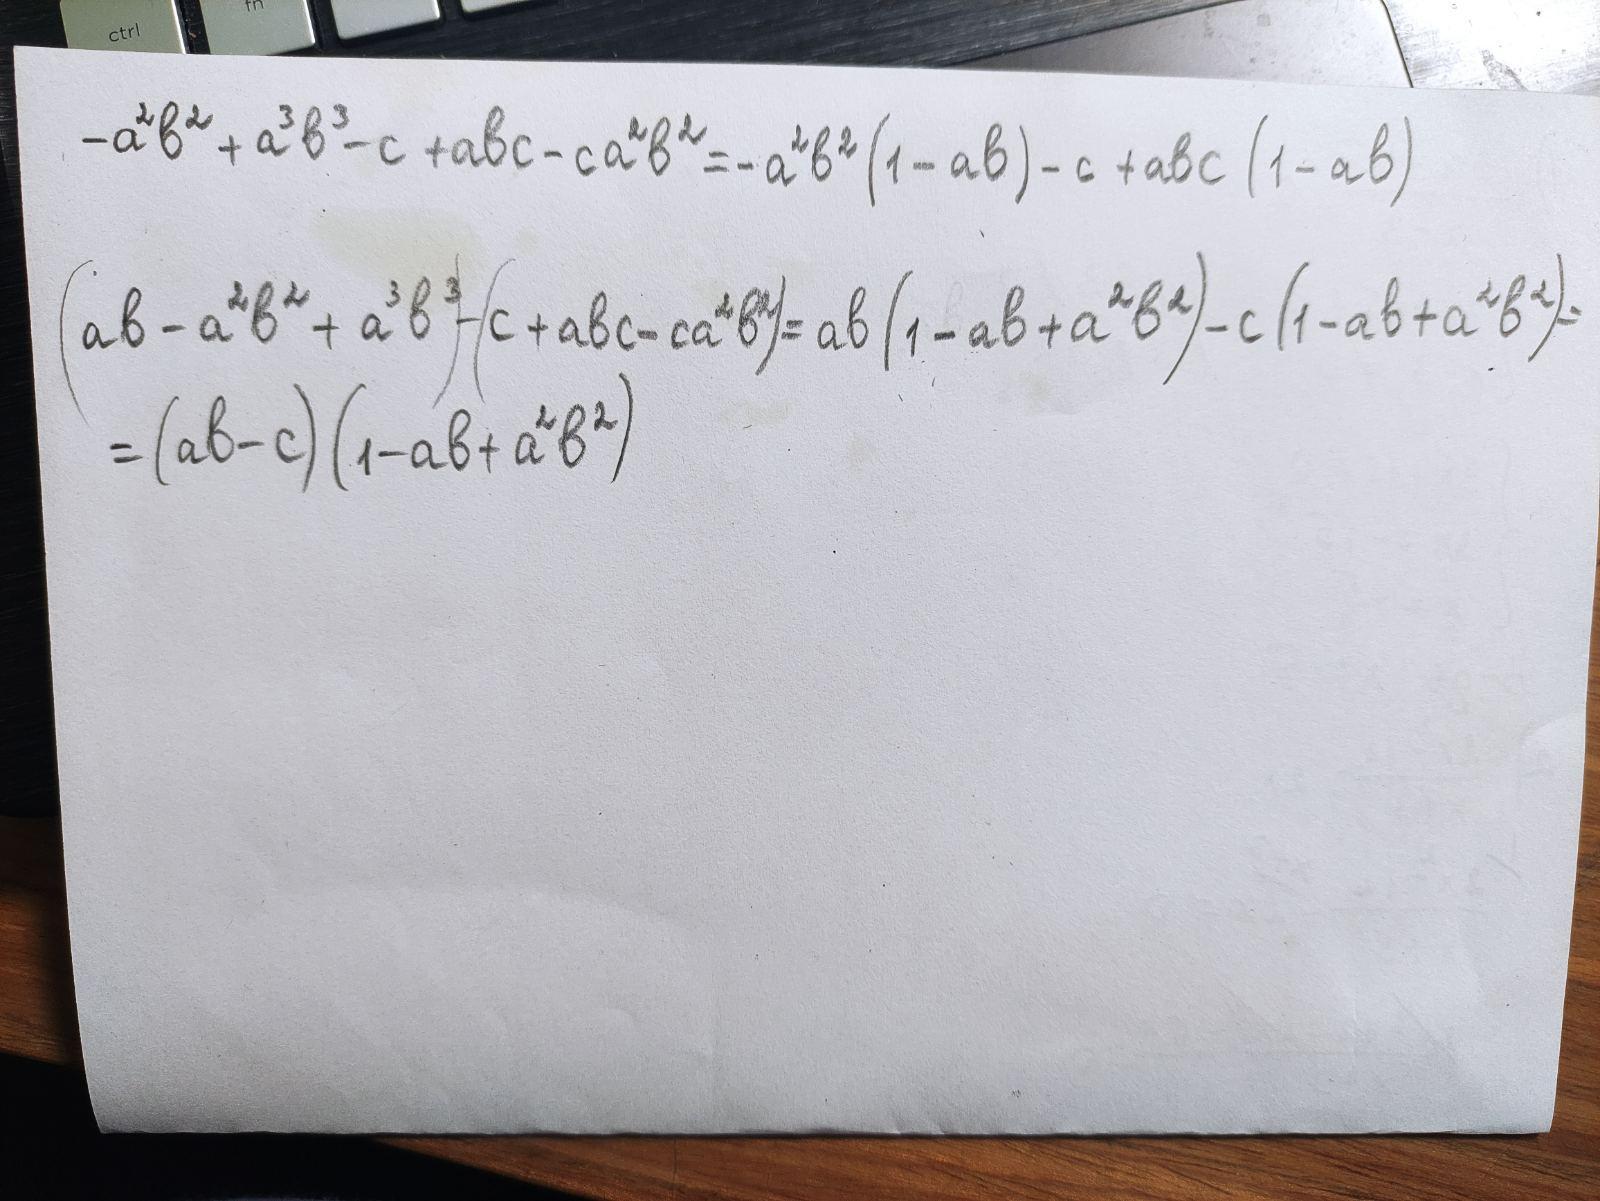 ctrl
fn
-a²b² + a³b³ - c + abc - ca²b² = -a²b² (1 - ab) - c + abc (1 - ab)
(ab - a²b² + a³b³) - (c + abc - ca²b²) = ab (1 - ab + a²b²) - c (1 - ab + a²b²) =
= (ab - c) (1 - ab + a²b²)